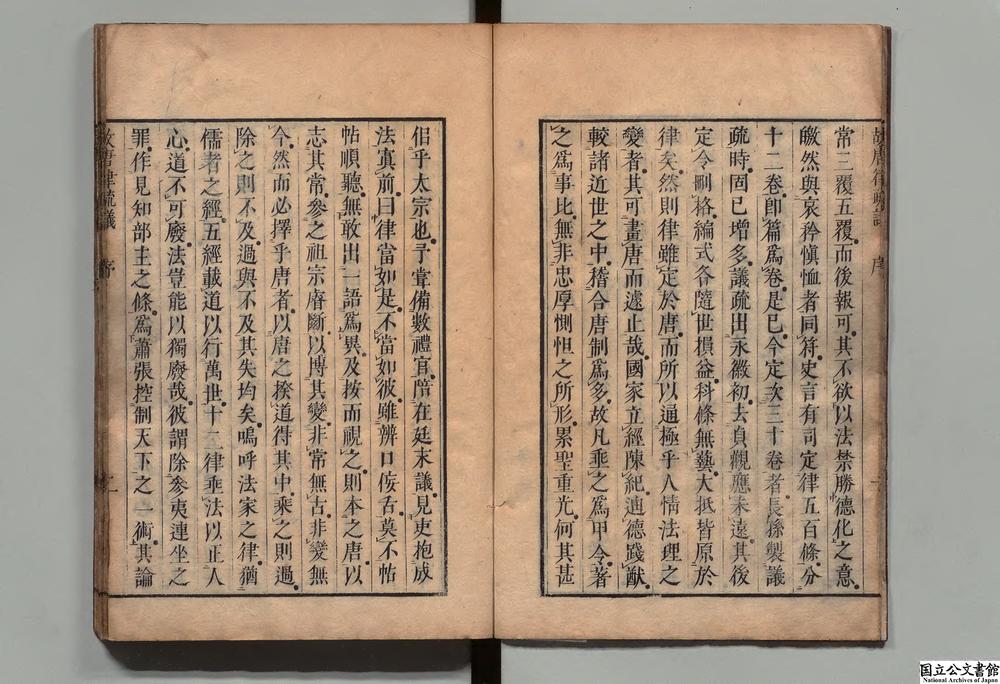 常三覆五覆而後報可其不欲以法禁勝德化之意
皦然與哀矜愼恤者同符史言有司定律五百條分
十二卷卽篇爲卷是已今定次三十卷者長孫製議
疏時固已增多議疏出永徽初去貞觀應未遠其後
定令刪格編式各隨世損益科條無蓺大抵皆原於
律矣然則律雖定於唐而所以通極乎人情法理之
變者其可畫唐而遽止哉國家立經陳紀迪德踐猷
較諸近世之中稽合唐制爲多故凡垂之爲甲令著
之爲事比無非忠厚惻怛之所形累聖重光何其甚
侶乎太宗也予嘗備數禮官陪在廷末議見吏抱成
法寘前曰律當如是不當如彼雖辨口佞舌莫不帖
帖順聽無敢出一語爲異及按而視之則本之唐以
志其常參之祖宗睿斷以博其變非常無古非變無
今然而必擇乎唐者以唐之揆道得其中乘之則過
除之則不及過與不及其失均矣嗚呼法家之律猶
儒者之經五經載道以行萬世十二律垂法以正人
心道不可廢法豈能以獨廢哉彼謂除參夷連坐之
罪作見知部主之條爲蕭張控制天下之一術其論
故唐律疏議 序 二
国立公文書館
National Archives of Japan